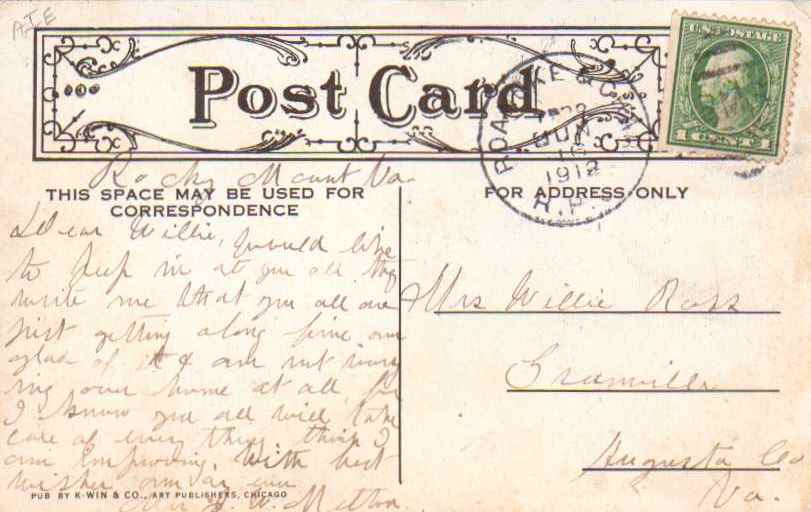 ATE
Post Card
U.S. POSTAGE
1 CENT 1
ROANOKE
JUN
16
1912
R.P.O.
Rocky Mount Va.
THIS SPACE MAY BE USED FOR
CORRESPONDENCE
FOR ADDRESS ONLY
Dear Willie, would like
to peep in at you all they
write me that you all are
just getting along fine am
glad of it & am not worry
ing over home at all, for
I know you all will take
care of every thing, think I
am improving. With best
wishes am as ever
J. W. Melton.
Mrs Willie Ross
Granville
Augusta Co
Va.
PUB BY K-WIN & CO., ART PUBLISHERS, CHICAGO